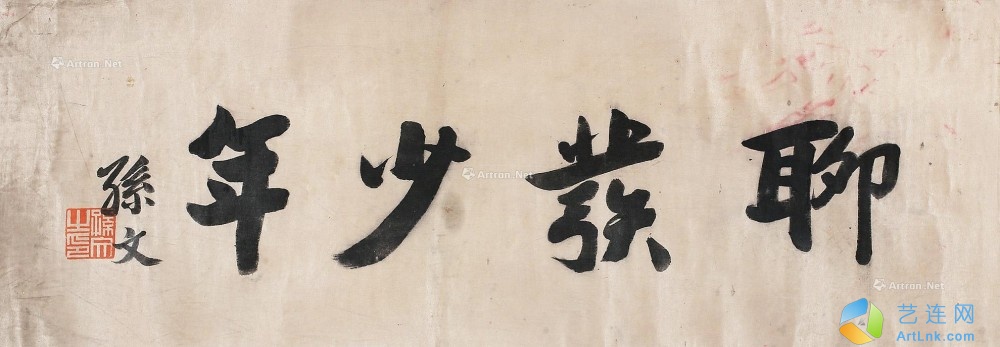 聊發少年
孫文
孫文之印
Artron.Net
Artron.Net
Artron.Net
艺连网
ArtLnk.com